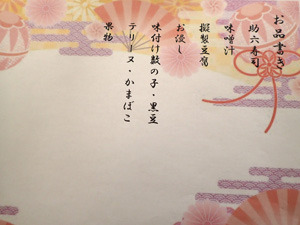 お品書き
助六寿司
味噌汁
擬製豆腐
お浸し
味付け数の子・黒豆
テリーヌ・かまぼこ
果物